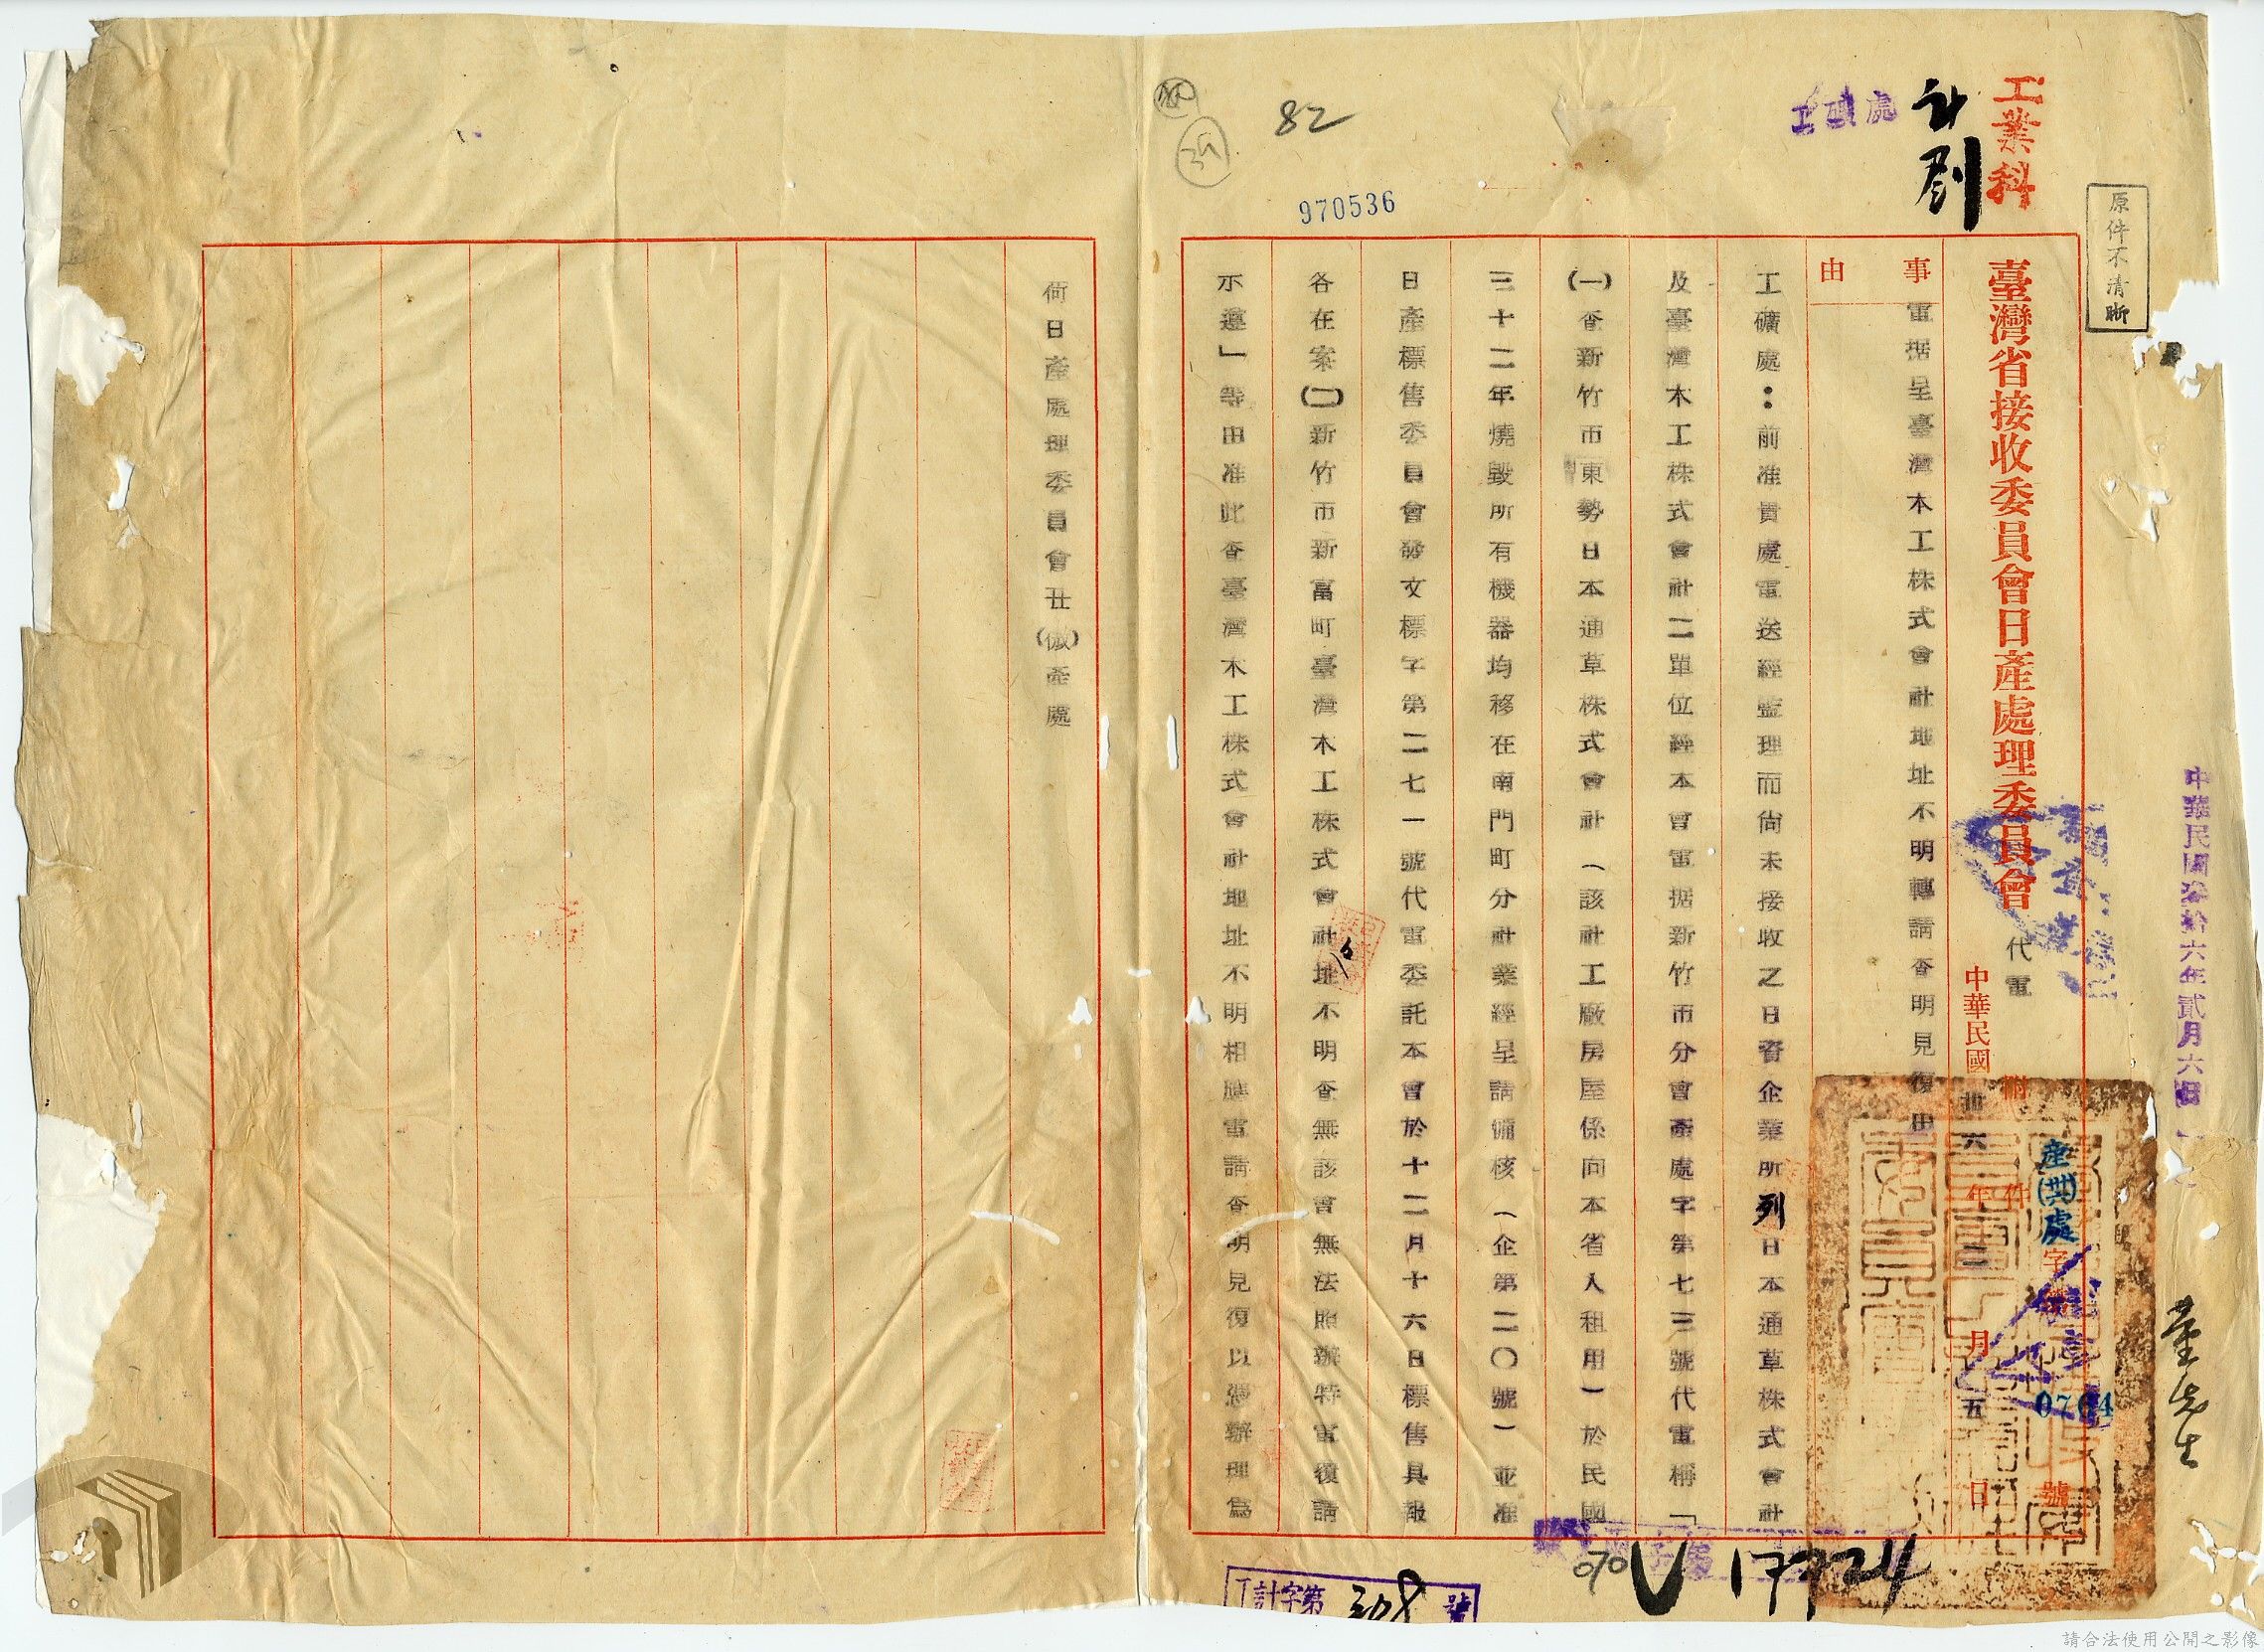 中華民國叁拾六年貳月六日
董先生
原件不清晰
工業科
計
劉
工礦處
臺灣省接收委員會日產處理委員會
代電
附
件
產(卅)處
字
第
0764
號
中華民國
卅六
年
二
月
五
日
事由
電据呈臺灣木工株式會社地址不明轉請查明見復由
工礦處:前准貴處電送經監理而尚未接收之日資企業所列日本通草株式會社
及臺灣木工株式會社二單位經本會電据新竹市分會產處字第七三號代電稱「
(一)查新竹市東勢日本通草株式會社(該社工廠房屋係向本省人租用)於民國
三十二年燒毀所有機器均移在南門町分社業經呈請備核(企第二〇號)並准
日產標售委員會發文標字第二七一號代電委託本會於十二月十六日標售具報
各在案(二)新竹市新富町臺灣木工株式會社址不明查無該會無法照辦特電復請
示遵」等由准此查臺灣木工株式會社地址不明相應電請查明見復以憑辦理為
何日產處理委員會丑(微)產處
82
970536
070
17724
工計字第
號
請合法使用公開之影像